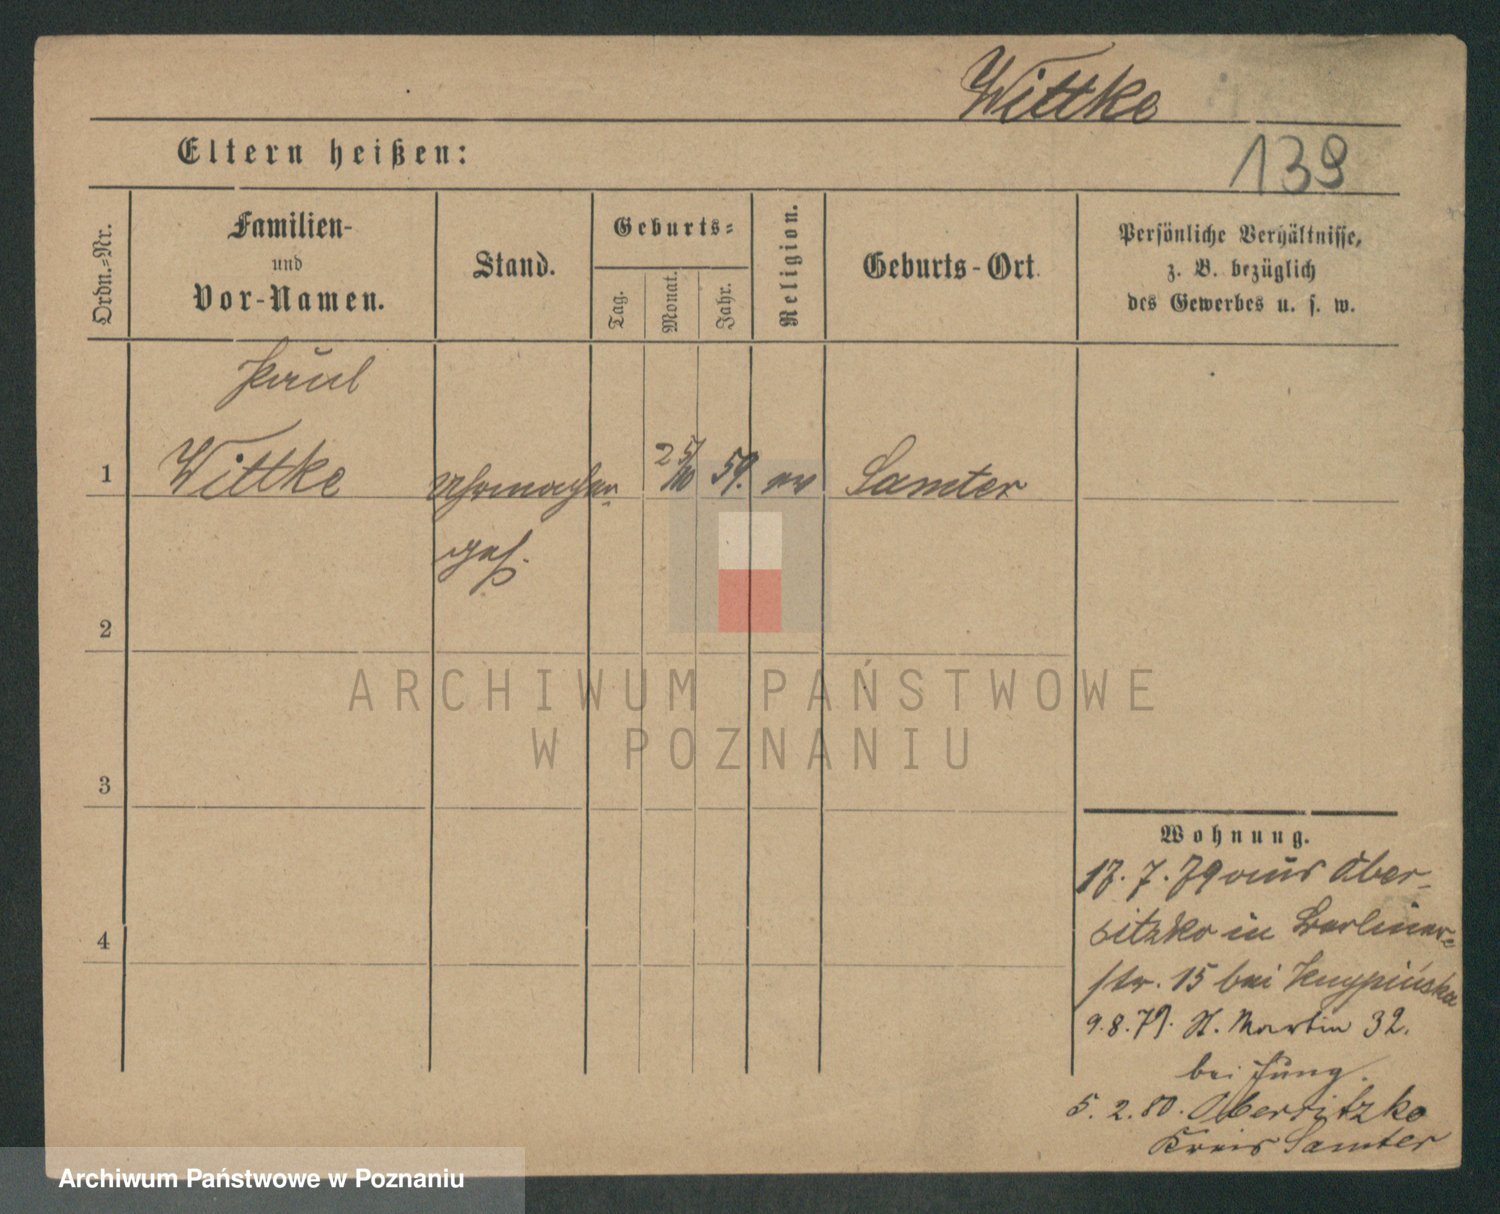 Wittke
Eltern heißen:
139
Ordn.-Nr.
Familien-
und
Vor-Namen.
Stand.
Geburts-
Tag.
Monat.
Jahr.
Religion.
Geburts-Ort.
Persönliche Verhältnisse,
z. B. bezüglich
des Gewerbes u. s. w.
Paul
1 Wittke Uhrmacher- 25/10 59. ev Samter
geh.
2
ARCHIWUM PAŃSTWOWE
W POZNANIU
3
Wohnung.
17. 7. 79 aus Ober-
sitzko in Berliner-
str. 15 bei Knypińska
9. 8. 79. St. Martin 32.
bei Jung.
4
5. 2. 80. Obersitzko
Kreis Samter
Archiwum Państwowe w Poznaniu